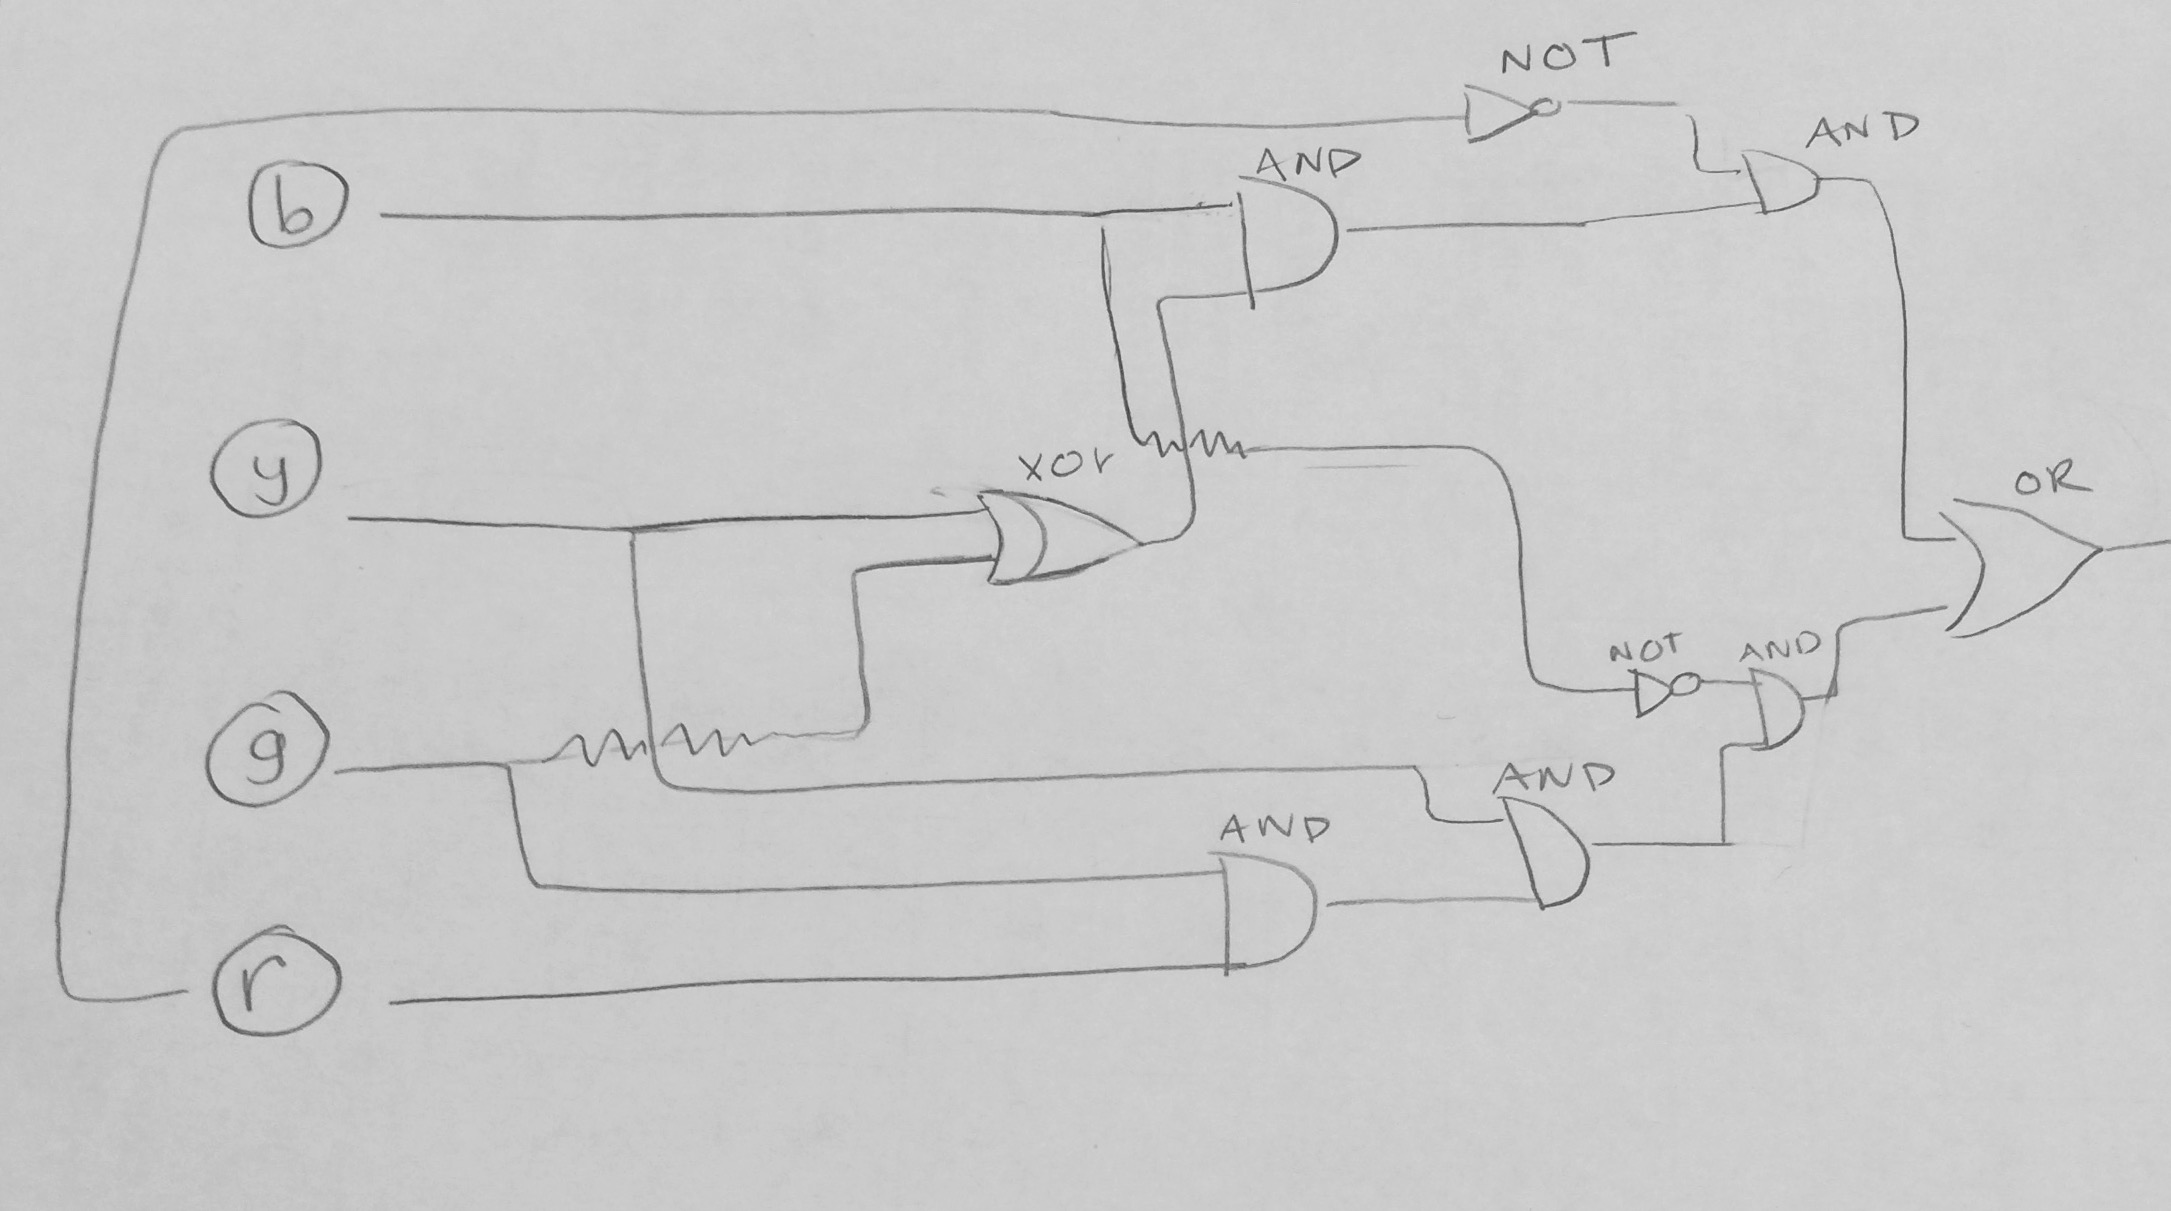 NOT
AND
AND
b
xor
y
OR
NOT
AND
g
AND
AND
r